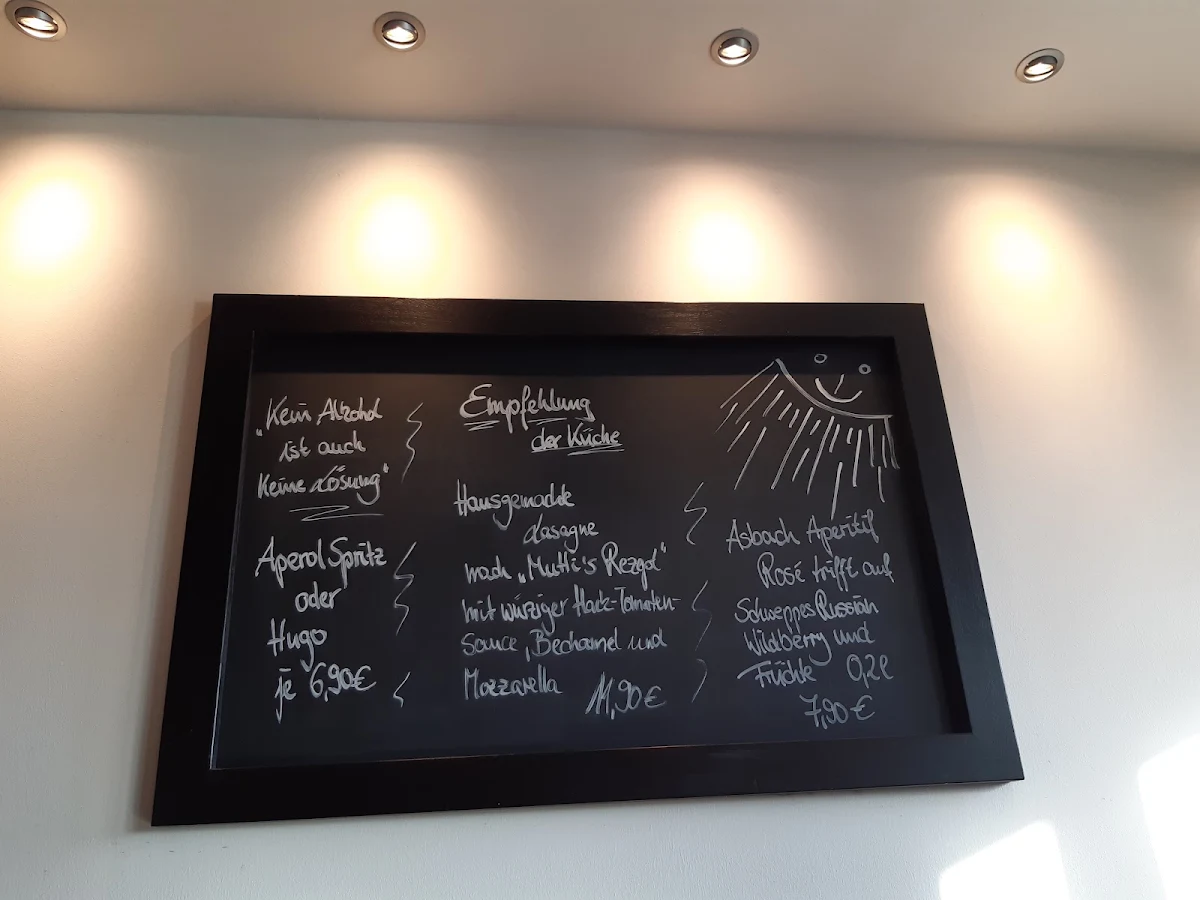 „Kein Alkohol
ist auch
Keine Lösung"
Aperol Spritz
oder
Hugo
je 6,90€
Empfehlung
der Küche
Hausgemachte
Lasagne
nach „Mutti's Rezept"
mit würziger Hack-Tomaten-
Sauce, Bechamel und
Mozzarella 11,90€
Asbach Aperitif
Rosé trifft auf
Schweppes Russian
Wildberry und
Früchte 0,2l
7,90€